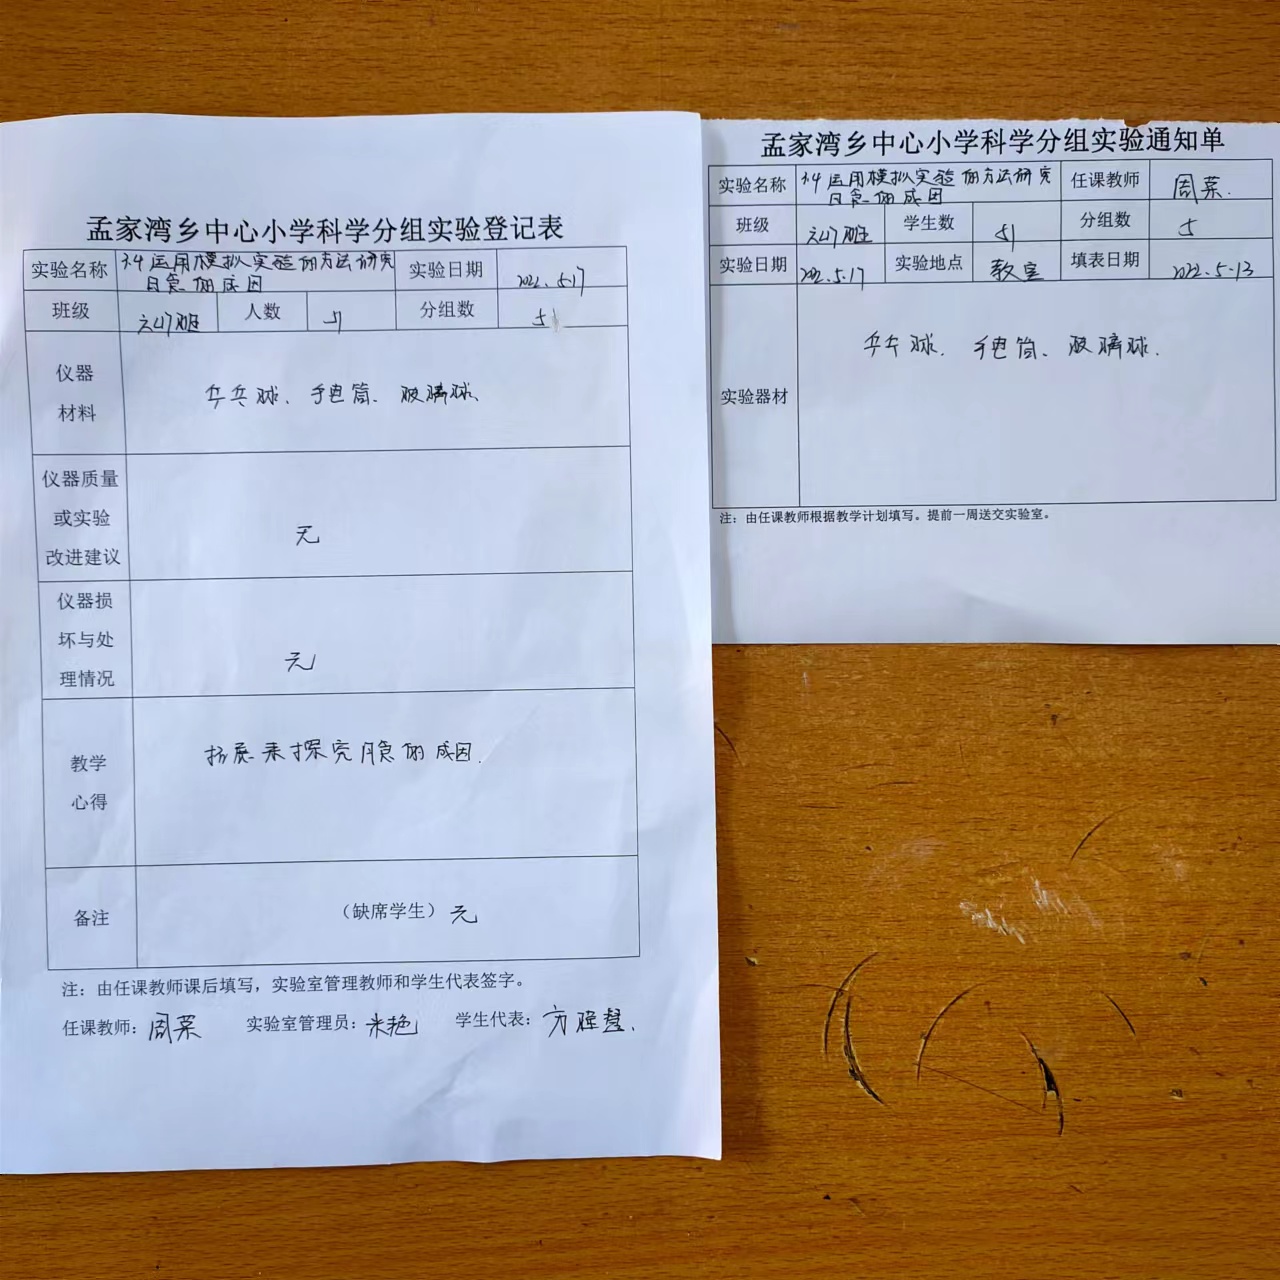 孟家湾乡中心小学科学分组实验登记表
实验名称 运用模拟实验的方法研究日食的成因 实验日期 2022.5.17
班级 六(4)班 人数 51 分组数 5
仪器材料 乒乓球、手电筒、玻璃球、
仪器质量或实验改进建议 无
仪器损坏与处理情况 无
教学心得 拓展来探究月食的成因.
备注 (缺席学生) 无
注:由任课教师课后填写,实验室管理教师和学生代表签字。
任课教师:周菜 实验室管理员:米艳 学生代表:方
孟家湾乡中心小学科学分组实验通知单
实验名称 运用模拟实验的方法研究日食的成因 任课教师 周菜.
班级 六(4)班 学生数 51 分组数 5
实验日期 2022.5.17 实验地点 教室 填表日期 2022.5.13
实验器材 乒乓球.手电筒、玻璃球.
注:由任课教师根据教学计划填写。提前一周送交实验室。